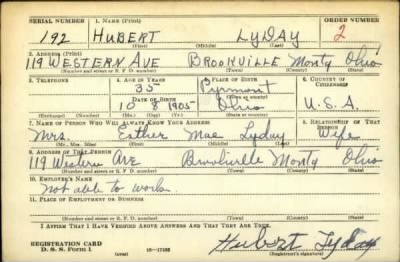 SERIAL NUMBER 1. NAME (Print) ORDER NUMBER
192 HUBERT LYDAY 2
(First) (Middle) (Last)
2. ADDRESS (Print)
119 WESTERN AVE BROOKVILLE Monty Ohio
(Number and street or R. F. D. number) (Town) (County) (State)
3. TELEPHONE 4. AGE IN YEARS 5. PLACE OF BIRTH 6. COUNTRY OF CITIZENSHIP
35 Pyrmont
(Town or county)
DATE OF BIRTH
10 8 1905 Ohio U.S.A.
(Exchange) (Number) (Mo.) (Day) (Yr.) (State or country)
7. NAME OF PERSON WHO WILL ALWAYS KNOW YOUR ADDRESS 8. RELATIONSHIP OF THAT PERSON
Mrs. Esther Mae Lyday Wife
(Mr., Mrs., Miss) (First) (Middle) (Last)
9. ADDRESS OF THAT PERSON
119 Western Ave Brookville Monty Ohio
(Number and street or R. F. D. number) (Town) (County) (State)
10. EMPLOYER'S NAME
Not able to work.
11. PLACE OF EMPLOYMENT OR BUSINESS
(Number and street or R. F. D. number) (Town) (County) (State)
I AFFIRM THAT I HAVE VERIFIED ABOVE ANSWERS AND THAT THEY ARE TRUE.
REGISTRATION CARD
D. S. S. Form 1 (over) 16-17105 Hubert Lyday
(Registrant's signature)